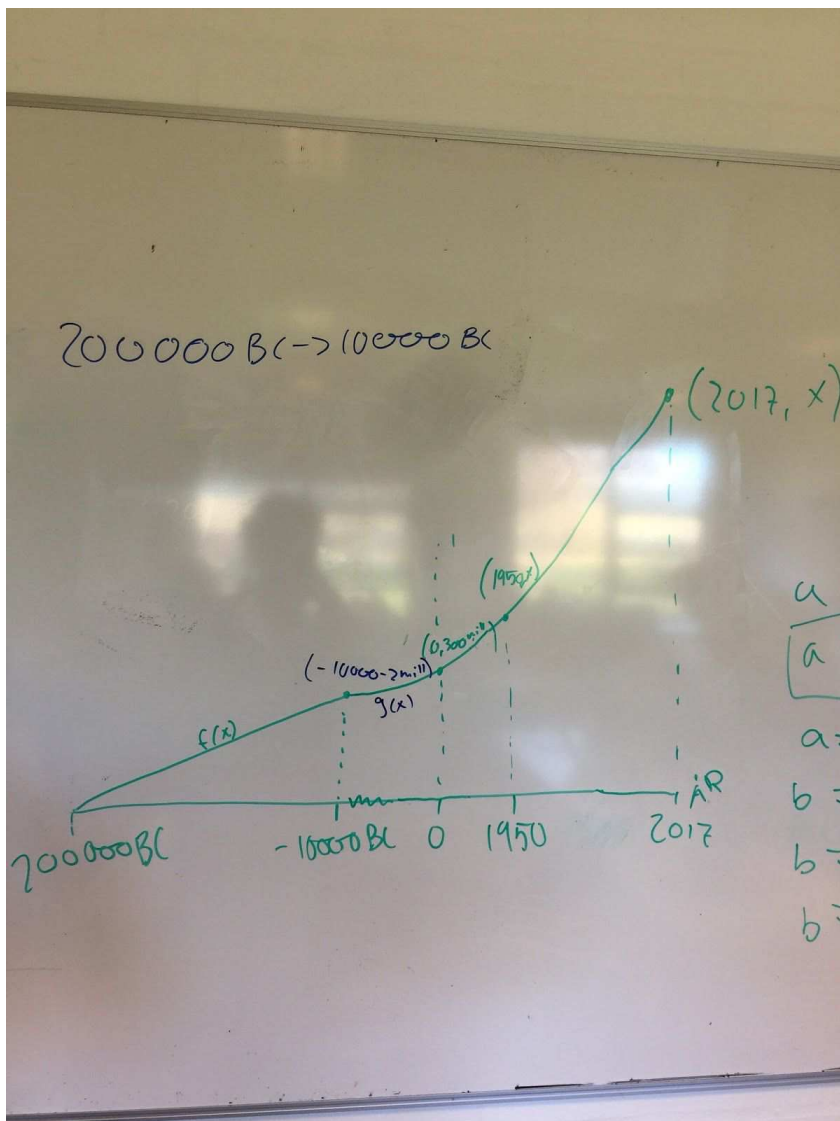 200000BC->10000BC
(2017, x)
(1950,x)
(0,300mill)
(-10000-2mill)
g(x)
f(x)
a
a
a=
b=
b=
b=
ÅR
200000BC -10000BC 0 1950 2017